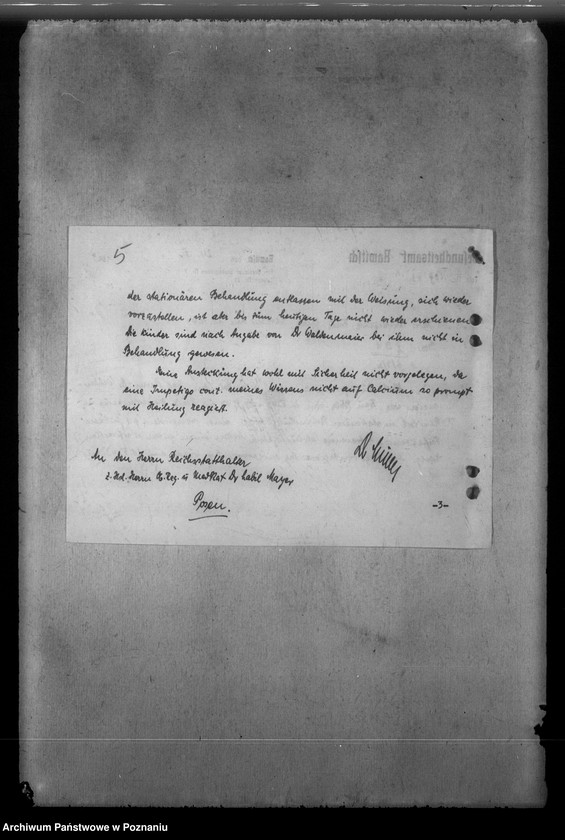 5
der stationären Behandlung entlassen mit der Weisung, sich wieder
vorzustellen, ist aber bis zum heutigen Tage nicht wieder erschienen
Die Kinder sind nach Angabe von Dr Waldenmaier bei ihm nicht in
Behandlung gewesen.
Eine Ansteckung hat wohl mit Sicherheit nicht vorgelegen, da
eine Impetigo cont. meines Wissens nicht auf Calcium so prompt
mit Heilung reagiert.
Dr
An den Herrn Reichsstatthalter
z. Hd. Herrn O. Reg. u Med Rat Dr habil Mayer
Posen.
-3-
Gesundheitsamt Rawitsch
Archiwum Państwowe w Poznaniu